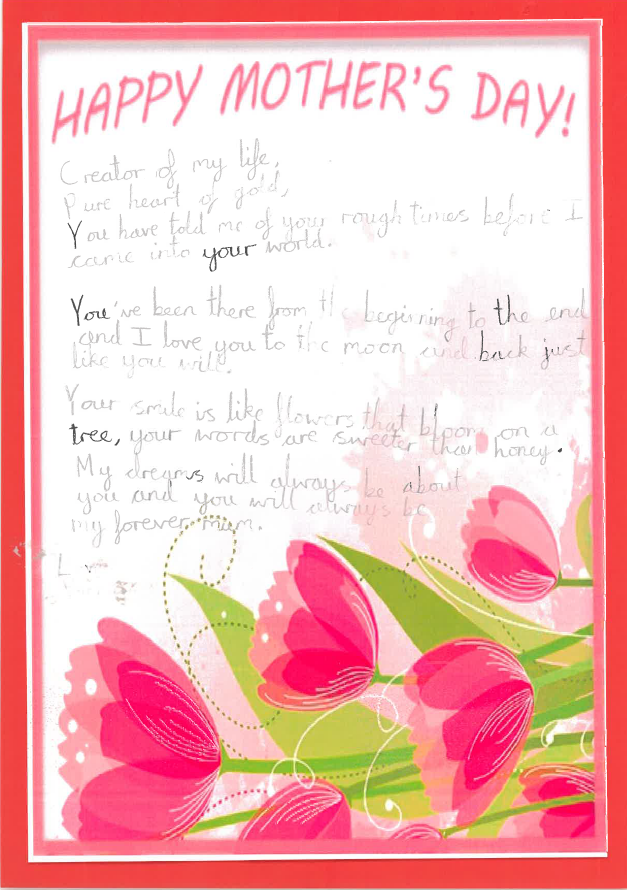 HAPPY MOTHER'S DAY!
Creator of my life,
Pure heart of gold,
You have told me of your rough times before I
came into your world.
You've been there from the beginning to the end
and I love you to the moon and back just
like you will.
Your smile is like flowers that bloom on a
tree, your words are sweeter than honey.
My dreams will always be about
you and you will always be
my forever mum.